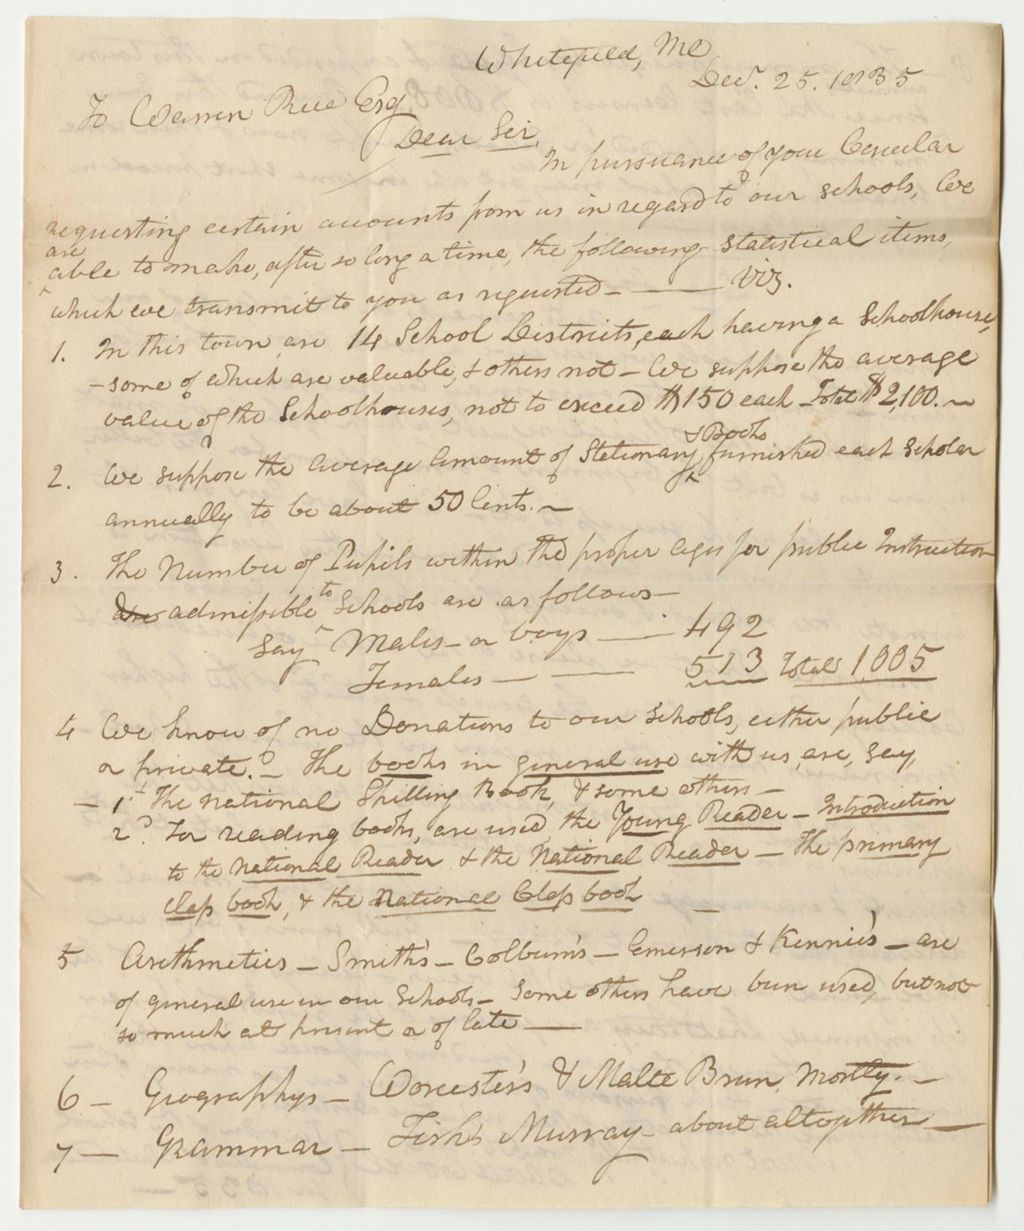 Whitefield, Me
Decr. 25. 1835
To Warren Rice Esq
Dear Sir,
In pursuance of your Circular
requesting certain accounts from us in regard to our schools, We
are
able to make, after so long a time, the following statistical items,
which we transmit to you as requested - — viz.
1. In this town are 14 School Districts, each having a Schoolhouse,
- some of which are valuable, & others not - We suppose the average
value of the Schoolhouses, not to exceed $150 each Total $2,100. ~
& Books
2. We suppose the average amount of Stetionary, furnished each scholar
annually to be about 50 Cents. ~
3. The Number of Pupils within the proper ages for public Instruction
to
admissible Schools are as follows —
Say Males - or boys — 492
Females — — 513 Total 1,005
4 We know of no Donations to our schools, either public
or private. - The books in general use with us, are, say,
- 1st The national Spilling Book, & some others -
2d For reading books, are used, the Young Reader - Introduction
to the National Reader & the National Reader - The primary
class book, & the National Class book —
5 Arithmetics - Smith's - Colburn's - Emerson & Kennie's - are
of general use in our Schools - Some others have been used, but not
so much at present or of late —
6 - Geographys - Worcester's & Malte Brun, mostly. -
7 — Grammar - Fisk's Murray about altogether —